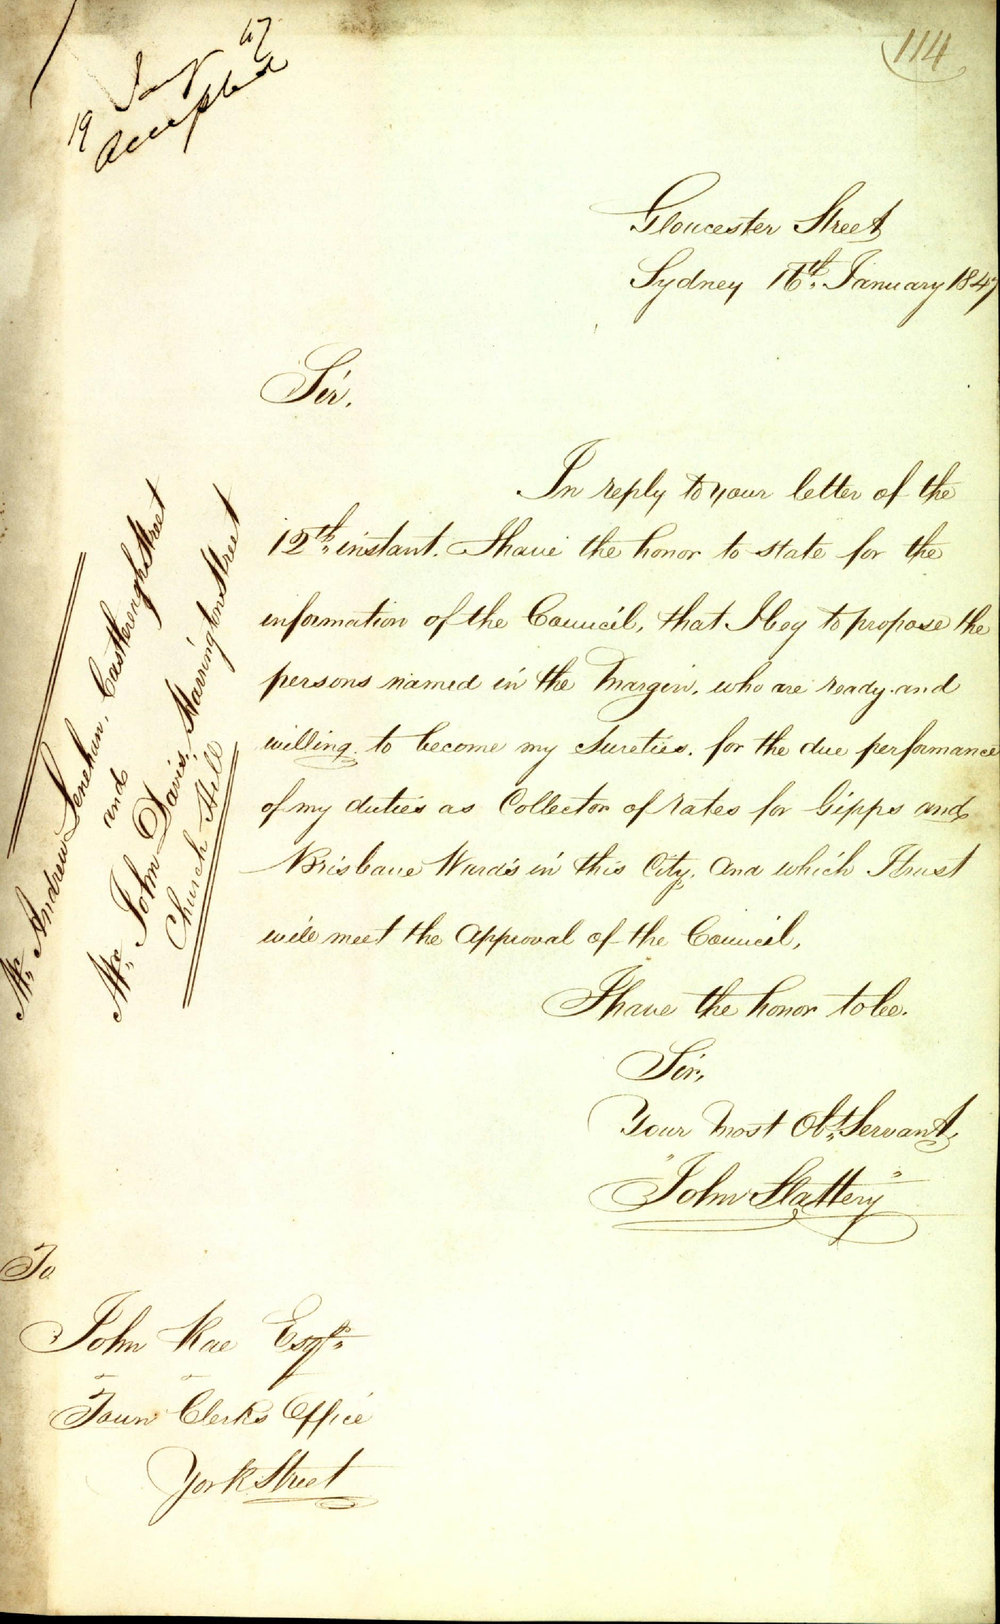 114
19 Jany 47
Accepted
Gloucester Street
Sydney 16th. January 1847
Sir,
In reply to your letter of the
12th. instant. I have the honor to state for the
information of the Council, that I beg to propose the
persons named in the Margin, who are ready and
willing to become my Sureties, for the due performance
of my duties as Collector of rates for Gipps and
Brisbane Wards in this City, and which I trust
will meet the Approval of the Council,
I have the honor to be.
Sir,
Your Most Obt. Servant,
"John Slattery"
Mr. Andrew Lenehan, Castlereigh Street
and
Mr. John Davis, Harrington Street
Church Hill
To
John Rae Esqre.
Town Clerks Office
York Street